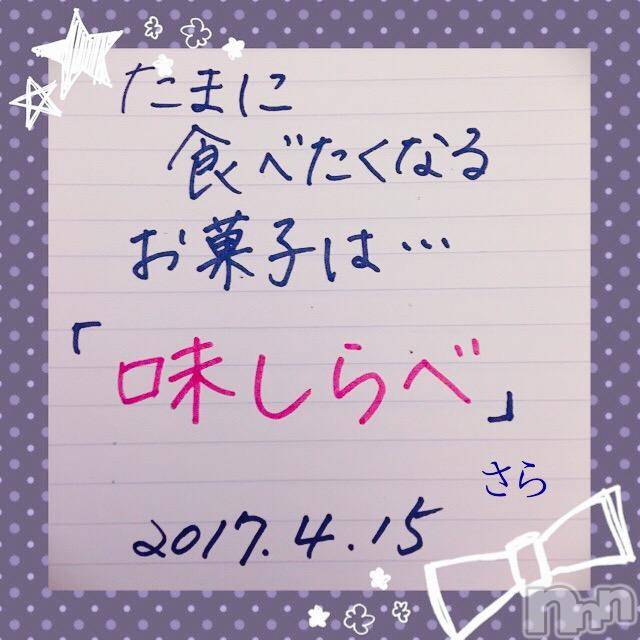 たまに
食べたくなる
お菓子は…
「味しらべ」
さら
2017.4.15
nnn